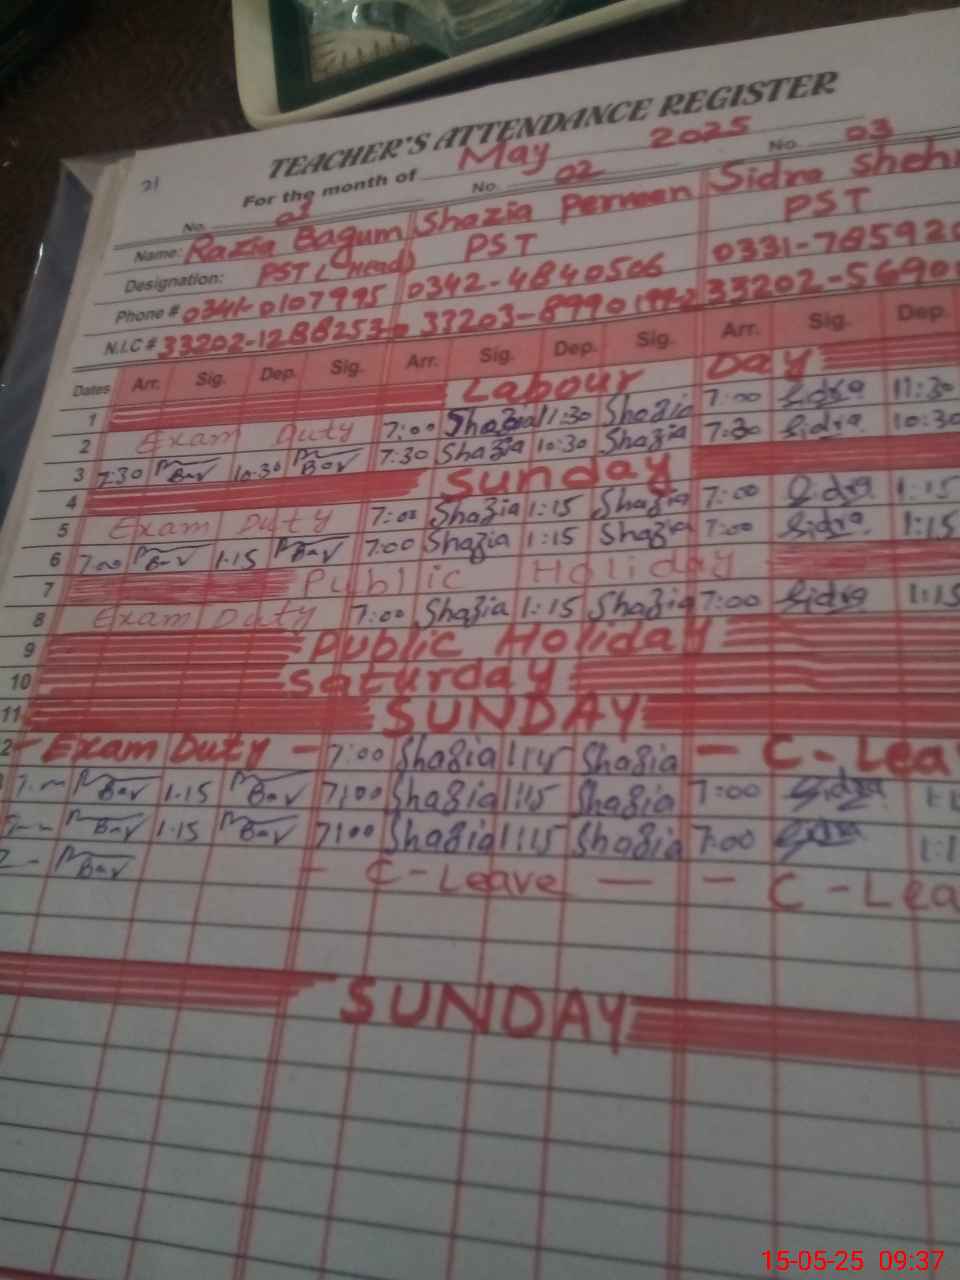 TEACHER'S ATTENDANCE REGISTER
21 For the month of May 2025
No. 01 No. 02 No. 03
Name: Razia Bagum Shazia Perveen Sidra Shehr
Designation: PST (Head) PST PST
Phone # 0341-0107995 0342-4840506 0331-785920
N.I.C # 33202-1288253- 33203-8990 33202-5690
Dates Arr. Sig. Dep. Sig. Arr. Sig. Dep. Sig. Arr. Sig. Dep.
1 Labour Day
2 Exam Duty 7:00 Shazia 11:30 Shazia 7:00 Sidra 11:30
3 7:30 10:30 7:30 Shazia 10:30 Shazia 7:30 Sidra 10:30
4 Sunday
5 Exam Duty 7:00 Shazia 1:15 Shazia 7:00 Sidra 1:15
6 7:00 1:15 7:00 Shazia 1:15 Shazia 7:00 Sidra 1:15
7 Public Holiday
8 Exam Duty 7:00 Shazia 1:15 Shazia 7:00 Sidra 1:15
9 Public Holiday
10 Saturday
11 SUNDAY
2 - Exam Duty - 7:00 Shazia Shazia - C-Lea
7:00 1:15 7:00 Shazia 1:15 Shazia 7:00 Sidra 1:1
1:15 7:00 Shazia 1:15 Shazia 7:00 Sidra 1:1
- C-Leave - - C-Lea
SUNDAY
15-05-25 09:37